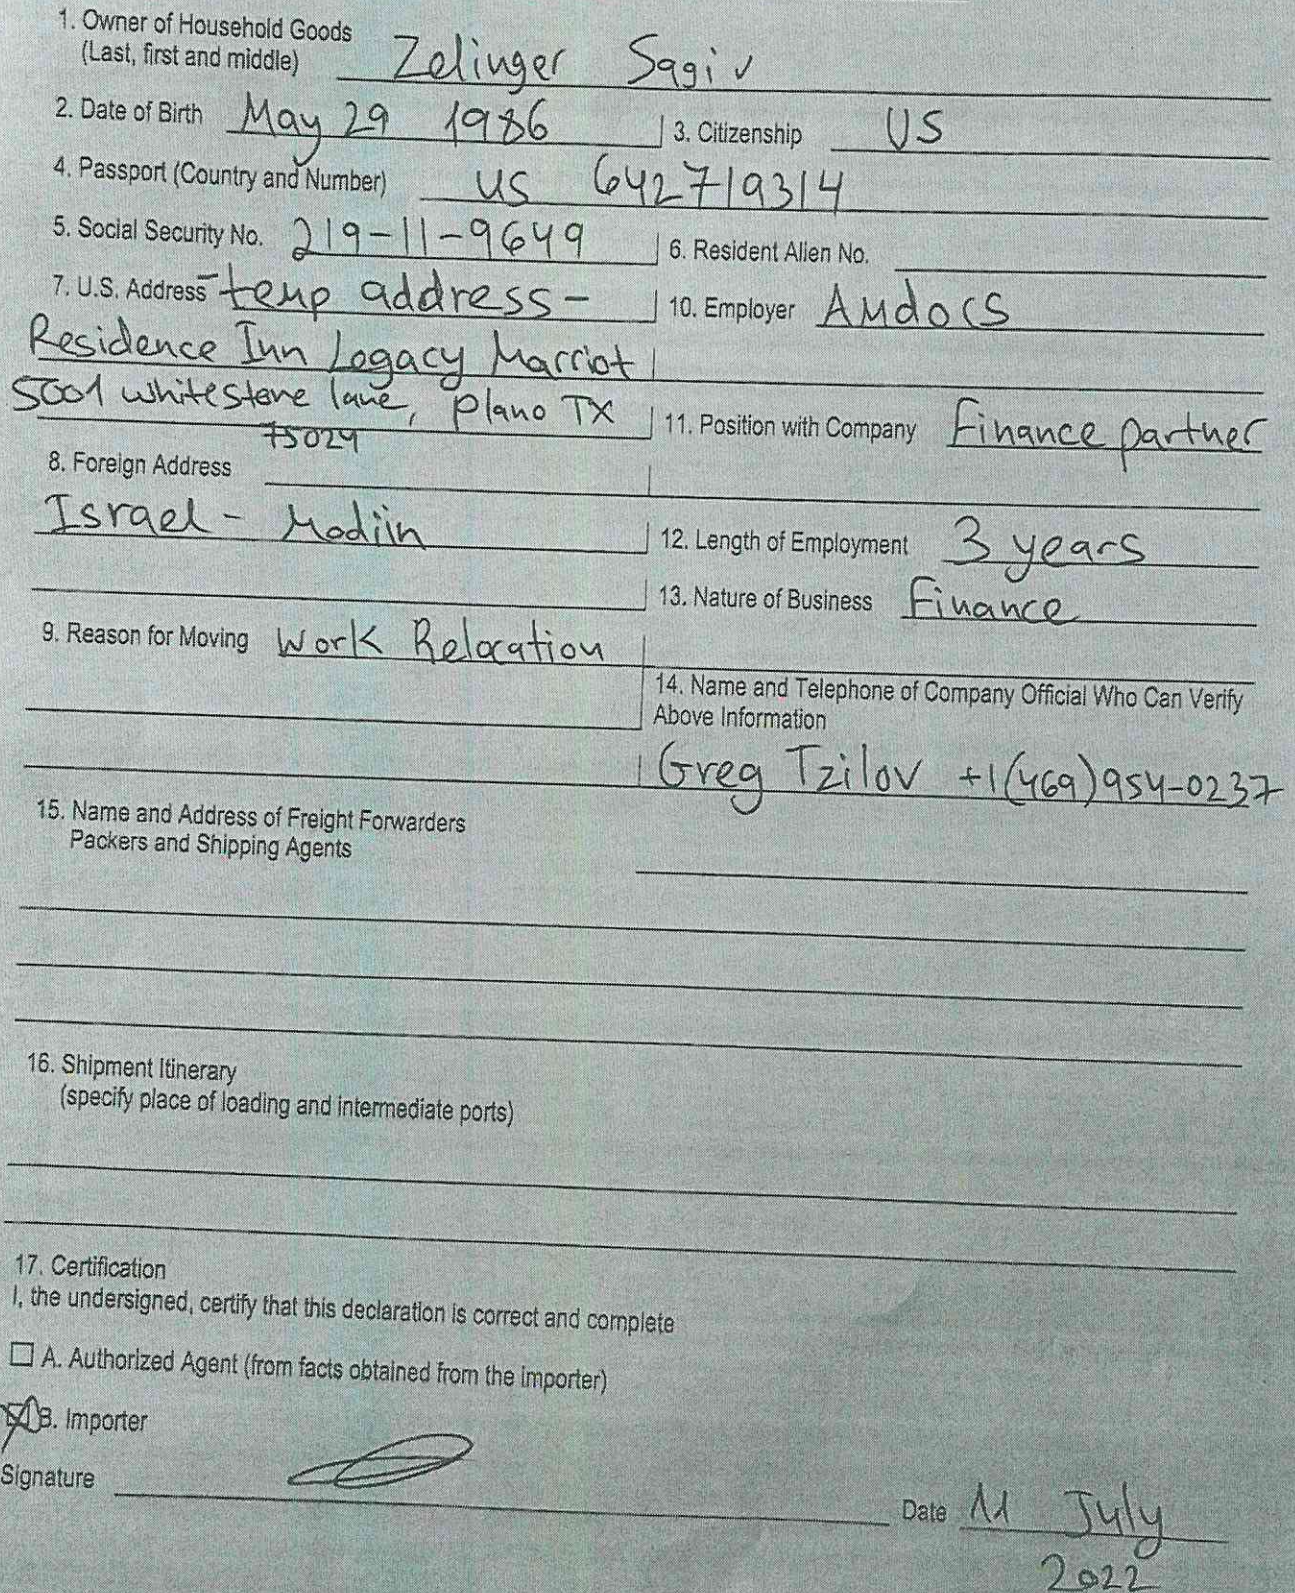 1. Owner of Household Goods
(Last, first and middle) Zelinger Sagiv
2. Date of Birth May 29 1986 3. Citizenship US
4. Passport (Country and Number) US 642719314
5. Social Security No. 219-11-9649 6. Resident Alien No.
7. U.S. Address temp address - 10. Employer Amdocs
Residence Inn Legacy Marriot
5001 whitestone lane, Plano TX 11. Position with Company Finance partner
75024
8. Foreign Address
Israel - Modiin 12. Length of Employment 3 years
13. Nature of Business Finance
9. Reason for Moving Work Relocation
14. Name and Telephone of Company Official Who Can Verify
Above Information
Greg Tzilov +1(469)954-0237
15. Name and Address of Freight Forwarders
Packers and Shipping Agents
16. Shipment Itinerary
(specify place of loading and intermediate ports)
17. Certification
I, the undersigned, certify that this declaration is correct and complete
A. Authorized Agent (from facts obtained from the importer)
B. Importer
Signature Date 11 July
2022